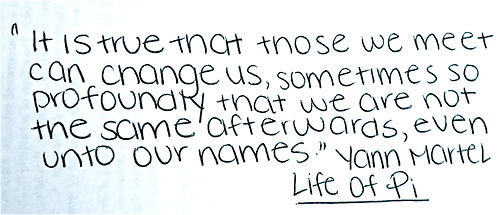 "It is true that those we meet
can change us, sometimes so
profoundly that we are not
the same afterwards, even
unto our names." Yann Martel
Life of Pi